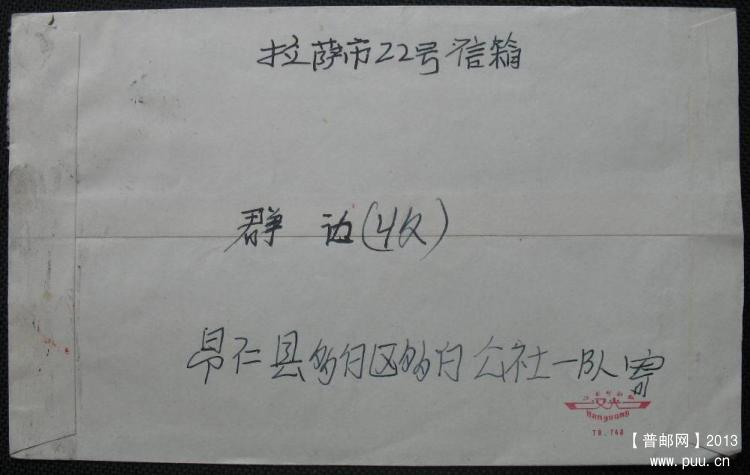 拉萨市22号信箱
群边(收)
昂仁县多白区多白公社一队寄
Hanguang
78.748
【普邮网】2013
www.puu.cn